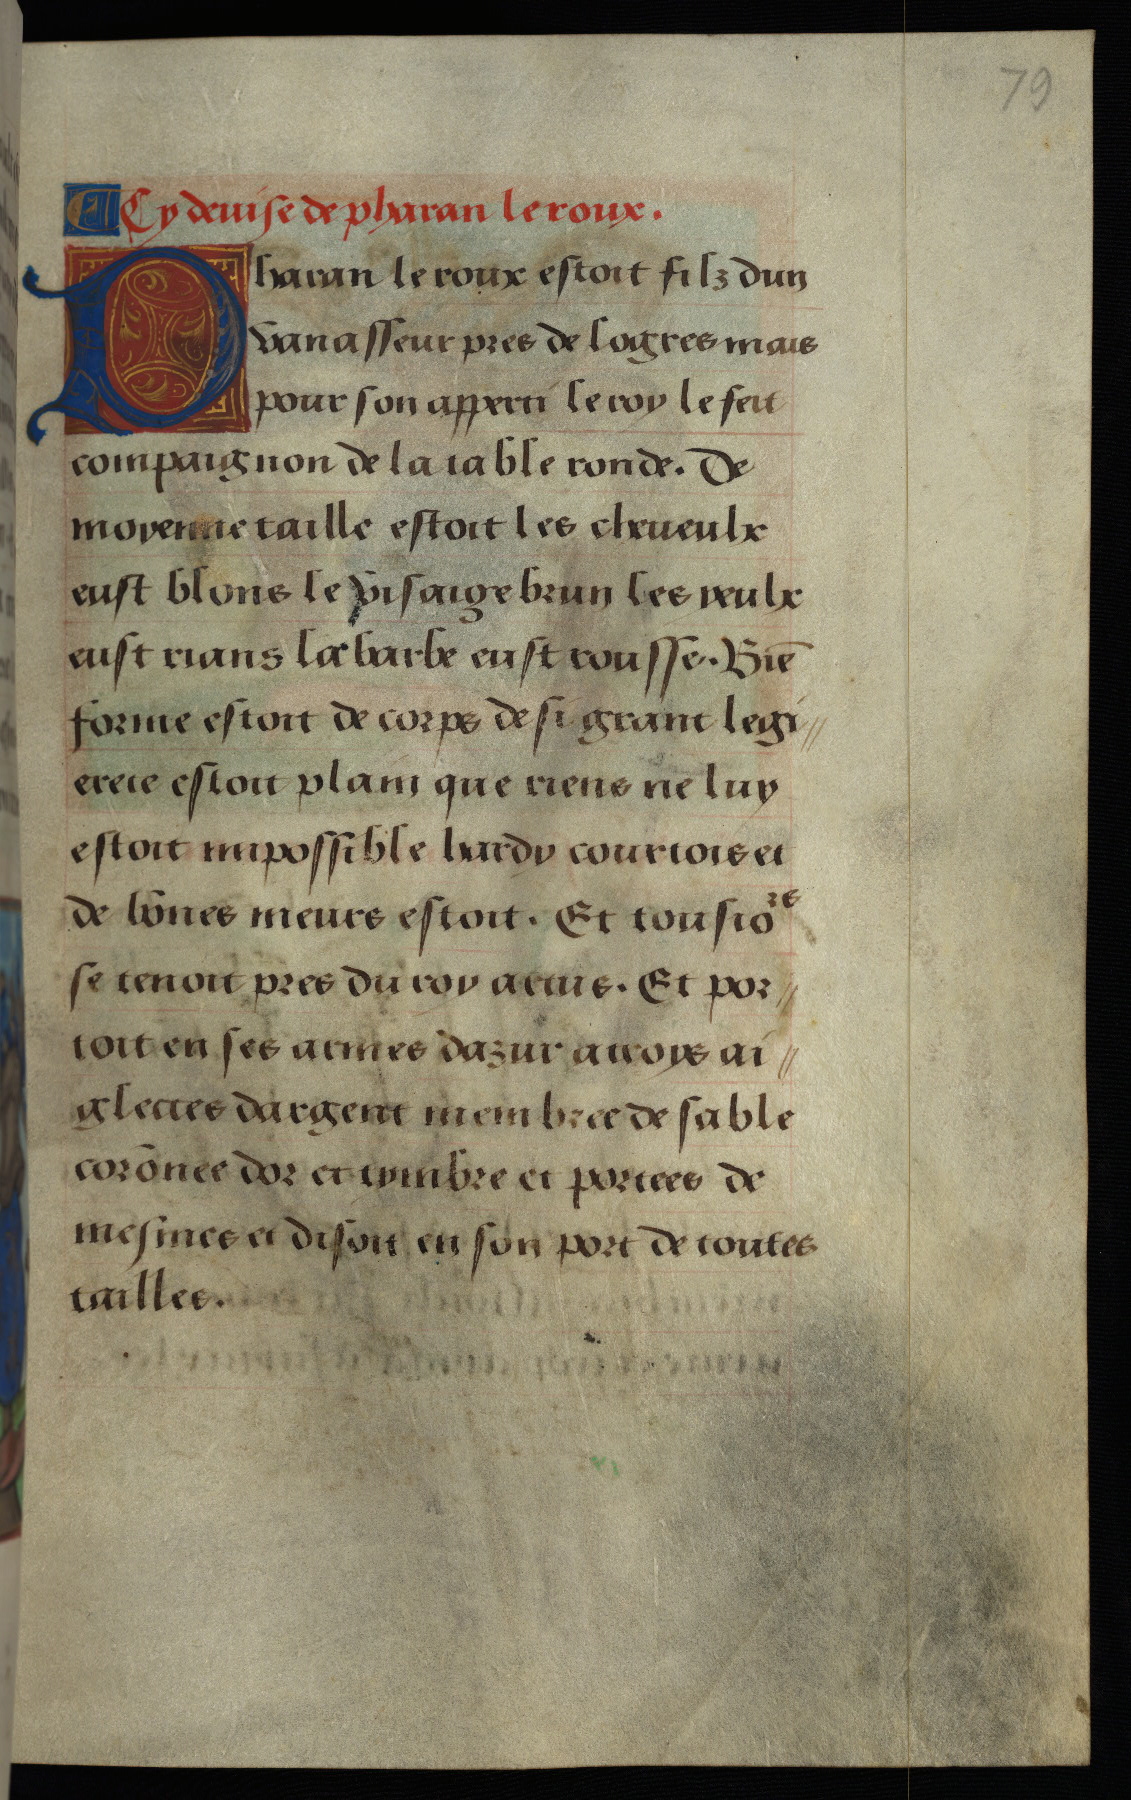 79
Cy deuise de pharan le roux.
Pharan le roux estoit filz dun
vauasseur pres de logres mais
pour son apperti le roy le feit
compaignon de la table ronde. De
moyenne taille estoit les cheueulx
eust blons le visaige brun les yeulx
eust rians la barbe eust rousse. Biē
forme estoit de corps de si grant legi//
erete estoit plain que riens ne luy
estoit impossible hardy courtois et
de bōnes meurs estoit. Et tousiors
se tenoit pres du roy artus. Et por//
toit en ses armes dazur a troys ai//
glettes dargent membree de sable
corōnee dor et tymbre et portees de
mesmes et disoit en son port de toutes
tailles.